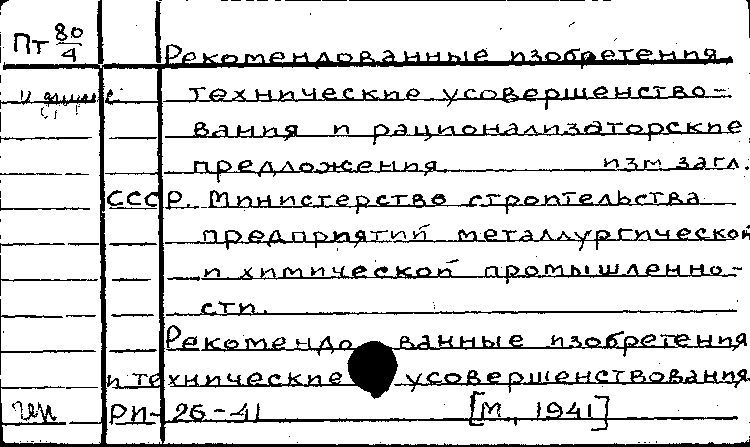 Пт 80/4
Рекомендованные изобретения
и другие технические усовершенство-
вания и рационализаторские
предложения изм загл.
СССР. Министерство строительства
предприятий металлургической
и химической промышленно-
сти.
Рекомендованные изобретения
и технические усовершенствования
РП-26-41 [М., 1941]